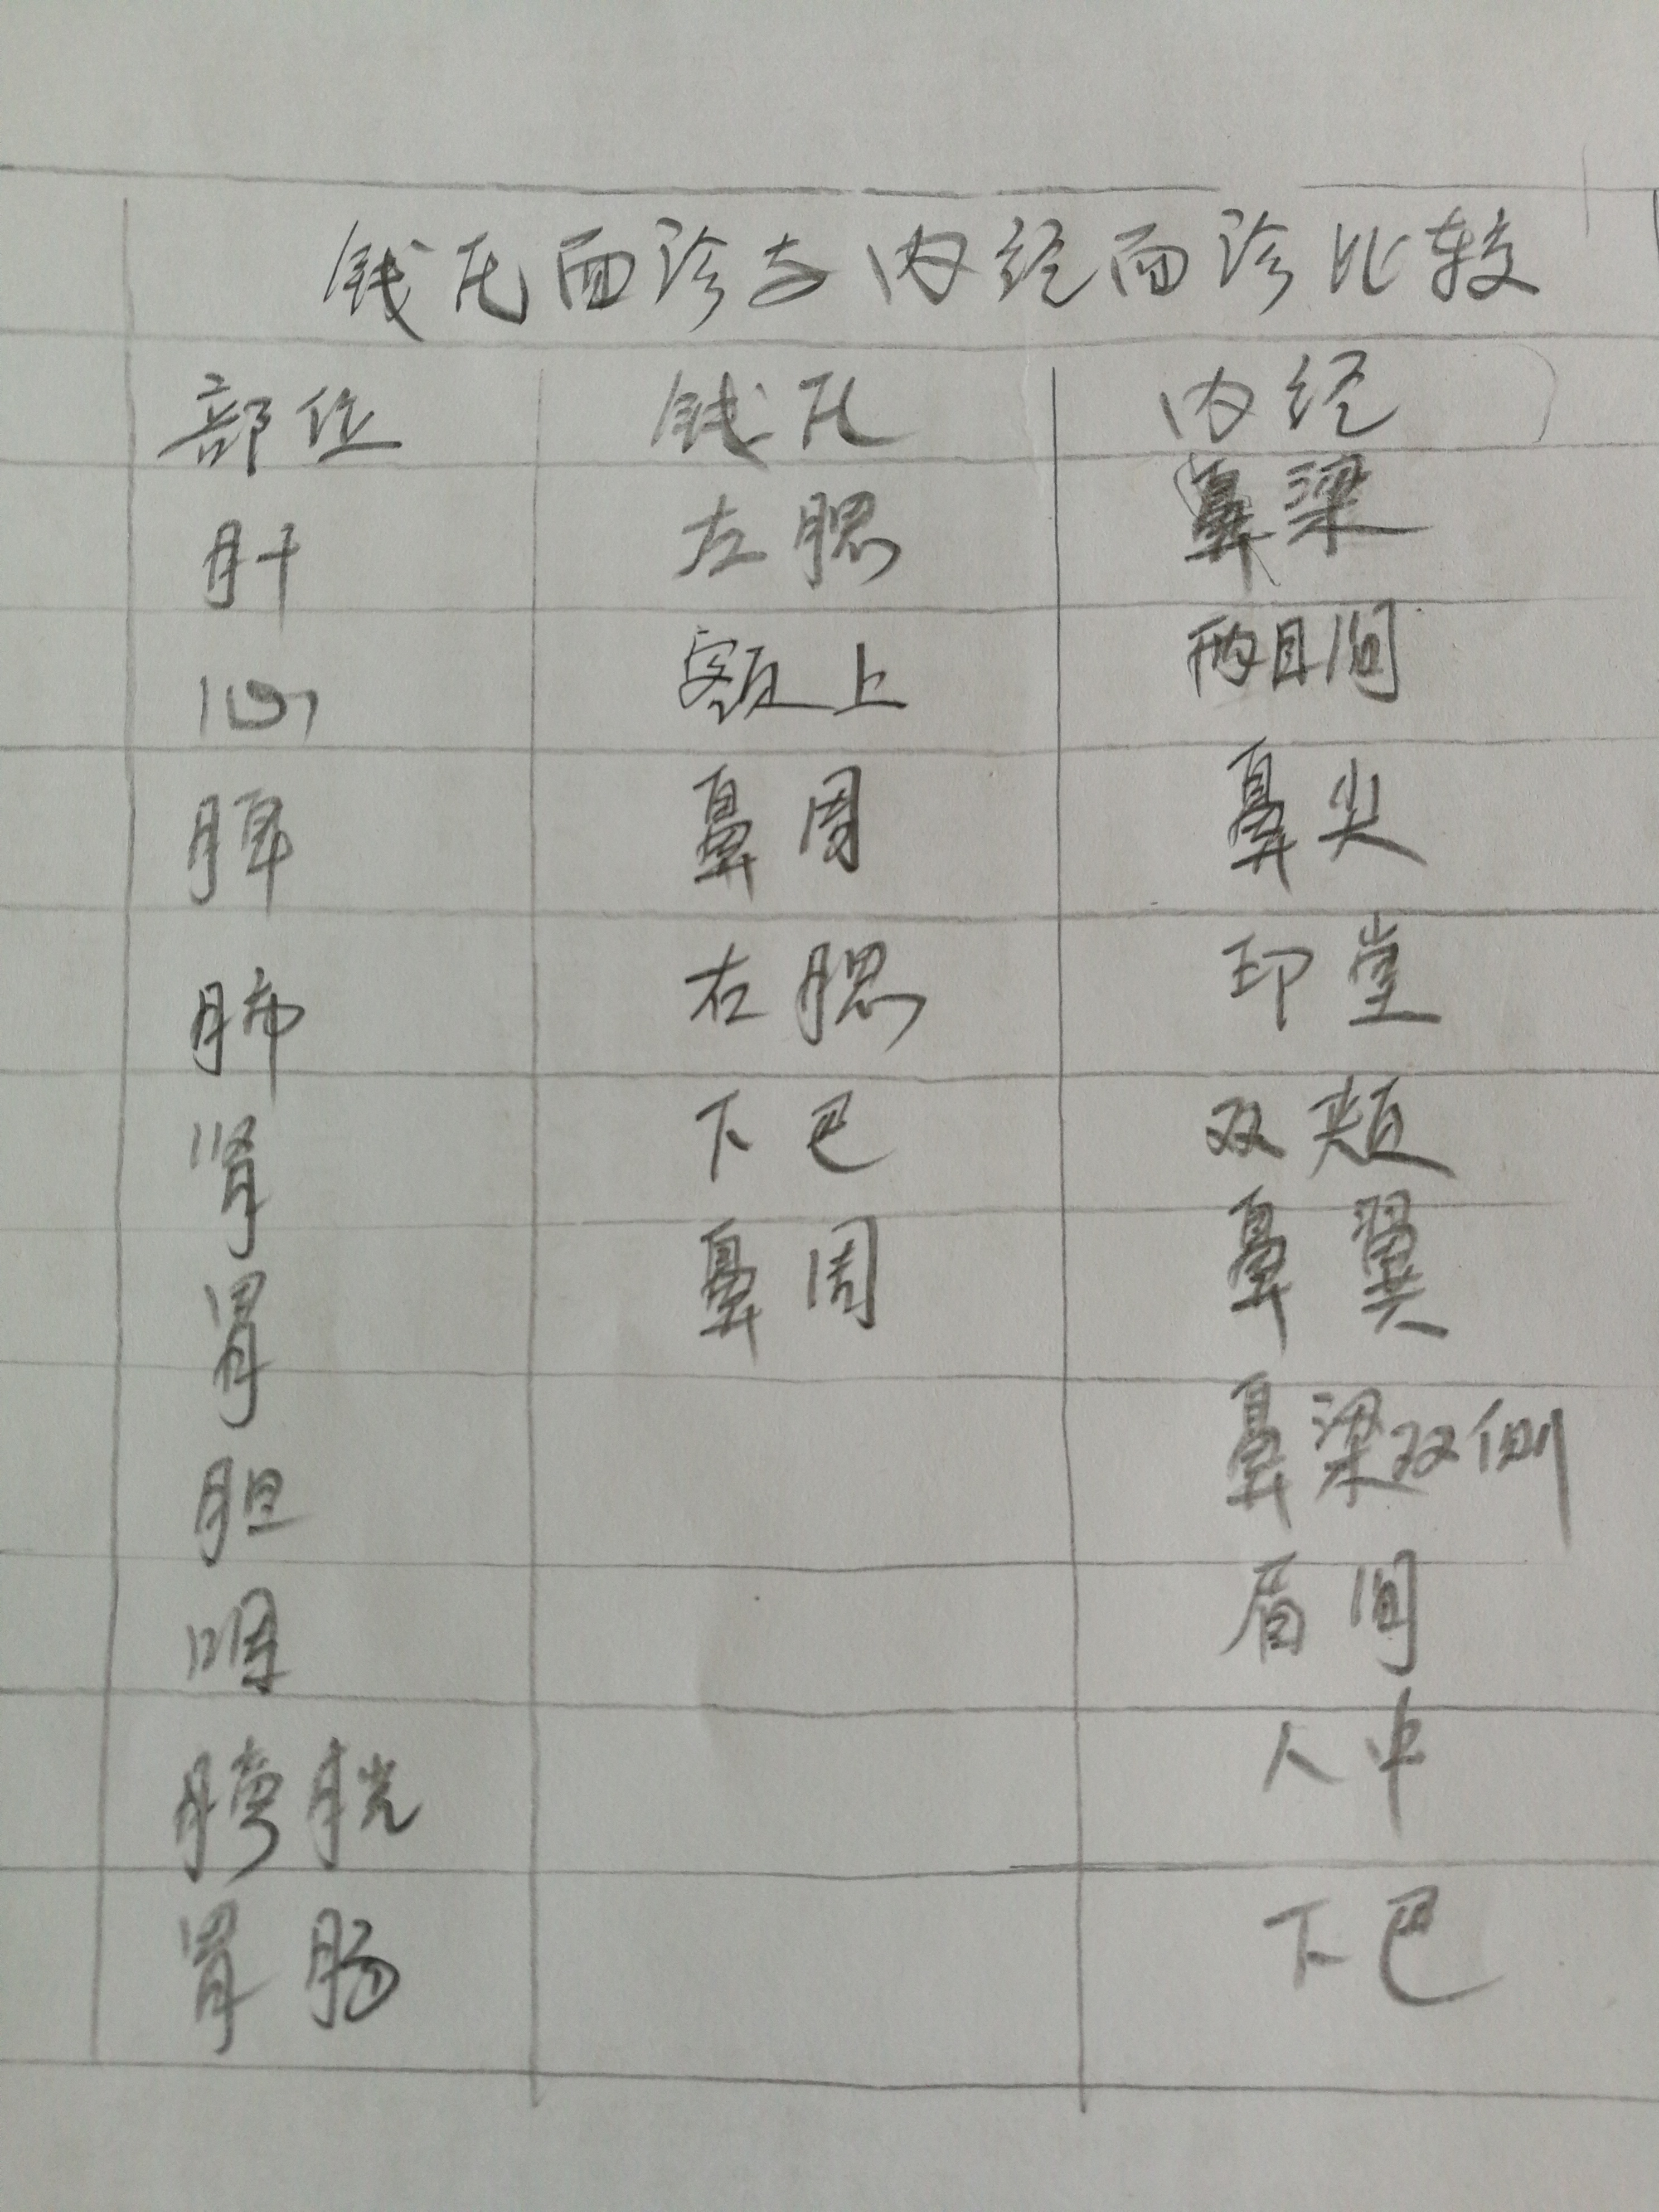 钱氏面诊与内经面诊比较
部位 钱氏 内经
肝 左腮 鼻梁
心 额上 两目间
脾 鼻周 鼻尖
肺 右腮 印堂
肾 下巴 双颊
胃 鼻周 鼻翼
胆 鼻梁双侧
咽 眉间
膀胱 人中
胃肠 下巴